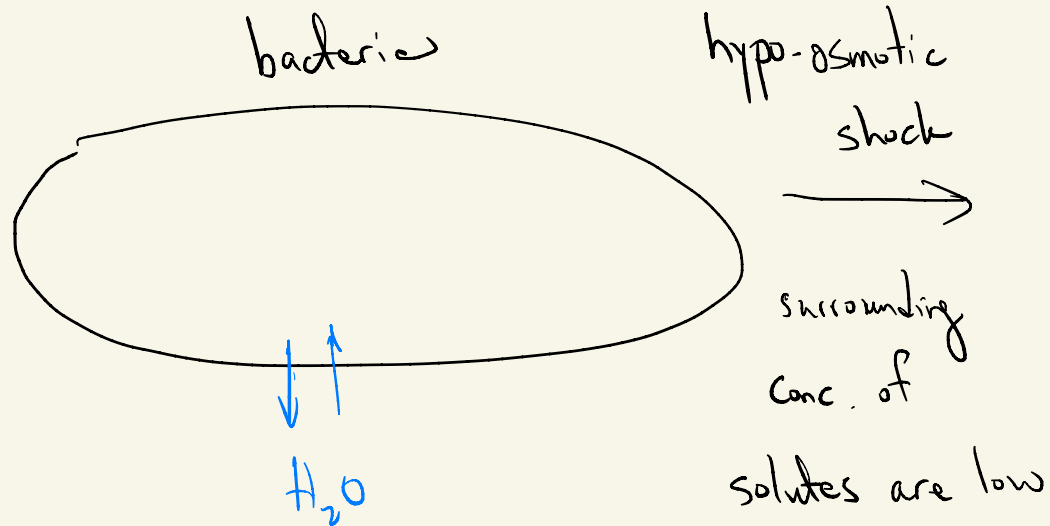 bacteria
hypo-osmotic
shock
surrounding
conc. of
solutes are low
H₂O